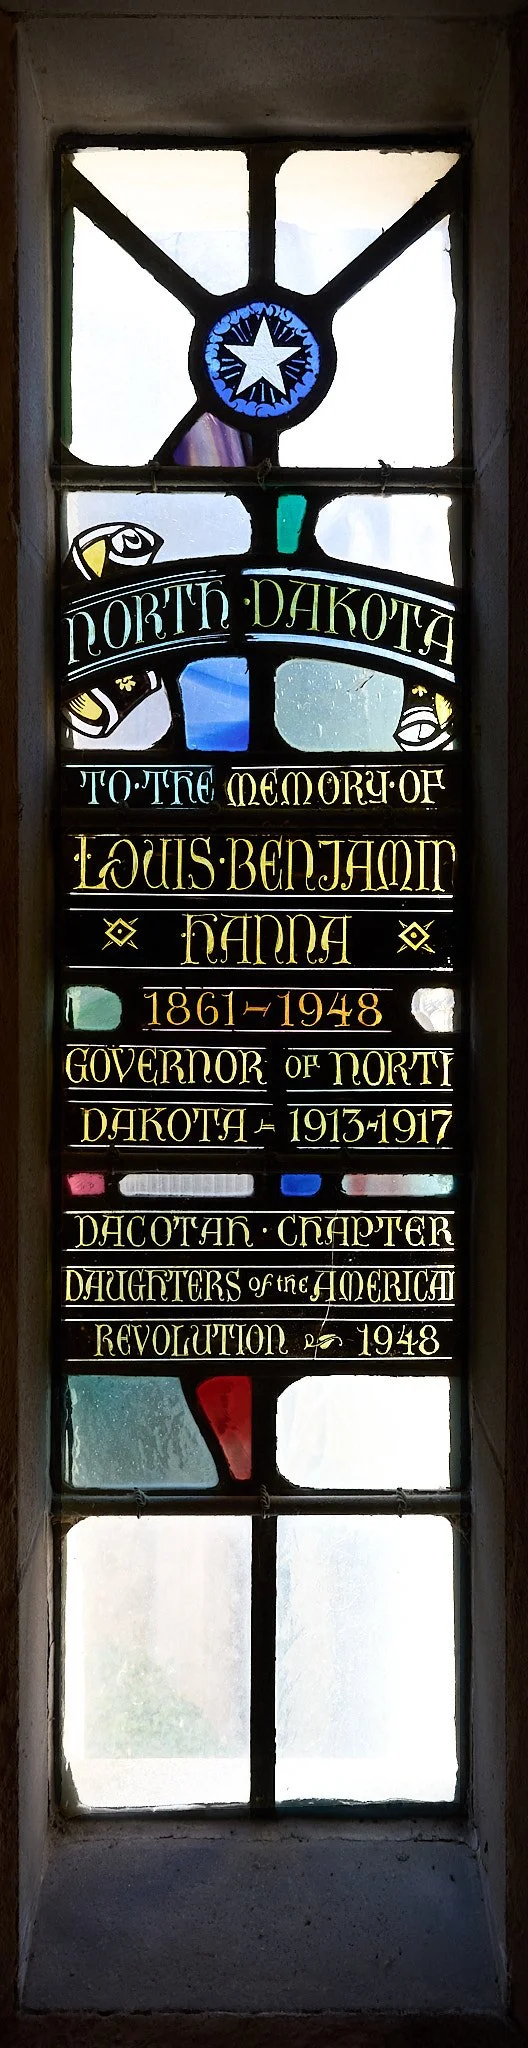 NORTH · DAKOTA
TO · THE MEMORY · OF
LOUIS · BENJAMIN
HANNA
1861 – 1948
GOVERNOR OF NORTH
DAKOTA – 1913-1917
DACOTAH · CHAPTER
DAUGHTERS of the AMERICAN
REVOLUTION 1948